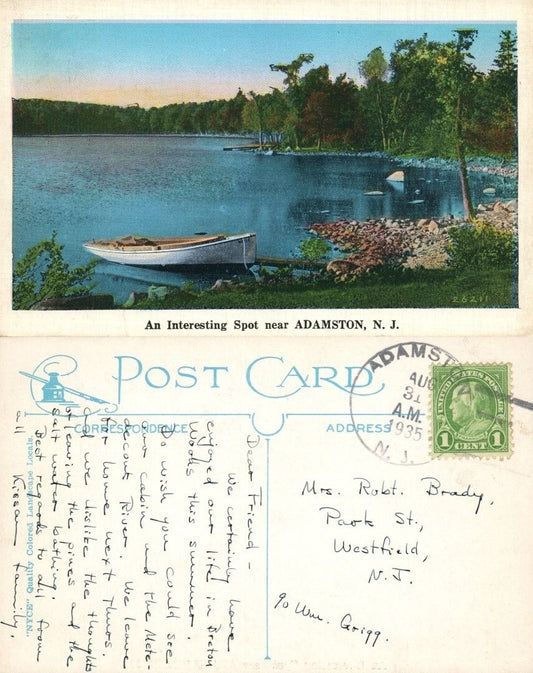 26211
An Interesting Spot near ADAMSTON, N. J.
POST CARD
CORRESPONDENCE
ADDRESS
ADAMST
AUG
31
A.M.
1935
N. J.
UNITED STATES POSTAGE
1 CENT 1
Dear Friend -
We certainly have
enjoyed our life in Breton
Woods this summer.
Do wish you could see
our cabin and the Mete-
deconk River. We leave
for home next Thurs.
and we dislike the thoughts
of leaving the pines and the
salt water bathing.
Best regards to all from
all Kissam Family.
Mrs. Robt. Brady,
Park St.,
Westfield,
N. J.
℅ Wm. Grigg.
"NYCE" Quality Colored Landscape Locals